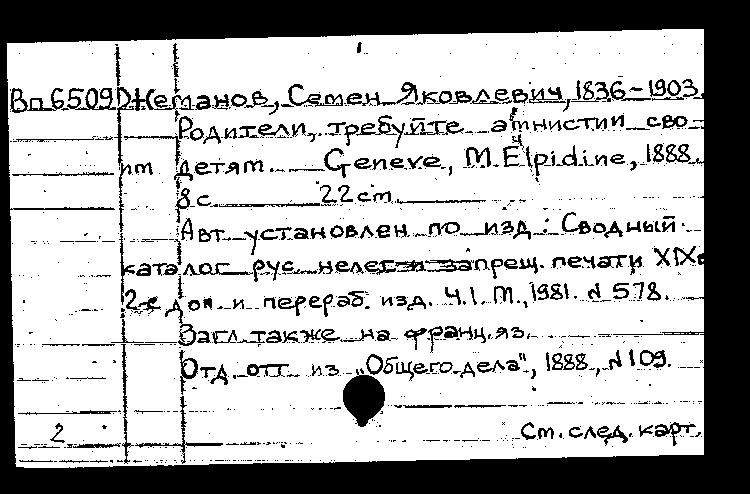 Вп6509 Джеманов, Семен Яковлевич, 1836-1903.
Родители, требуйте амнистии сво-
им детям. Geneve, M. Elpidine, 1888.
8 с. 22 cm.
Авт установлен по изд: Сводный
каталог рус нелег и запрещ. печати XIXв
2-е доп и перераб. изд. Ч.I. М., 1981. № 578.
Загл. также на франц. яз.
Отд. отт из „Общего дела", 1888, № 109.
2 См. след. карт.